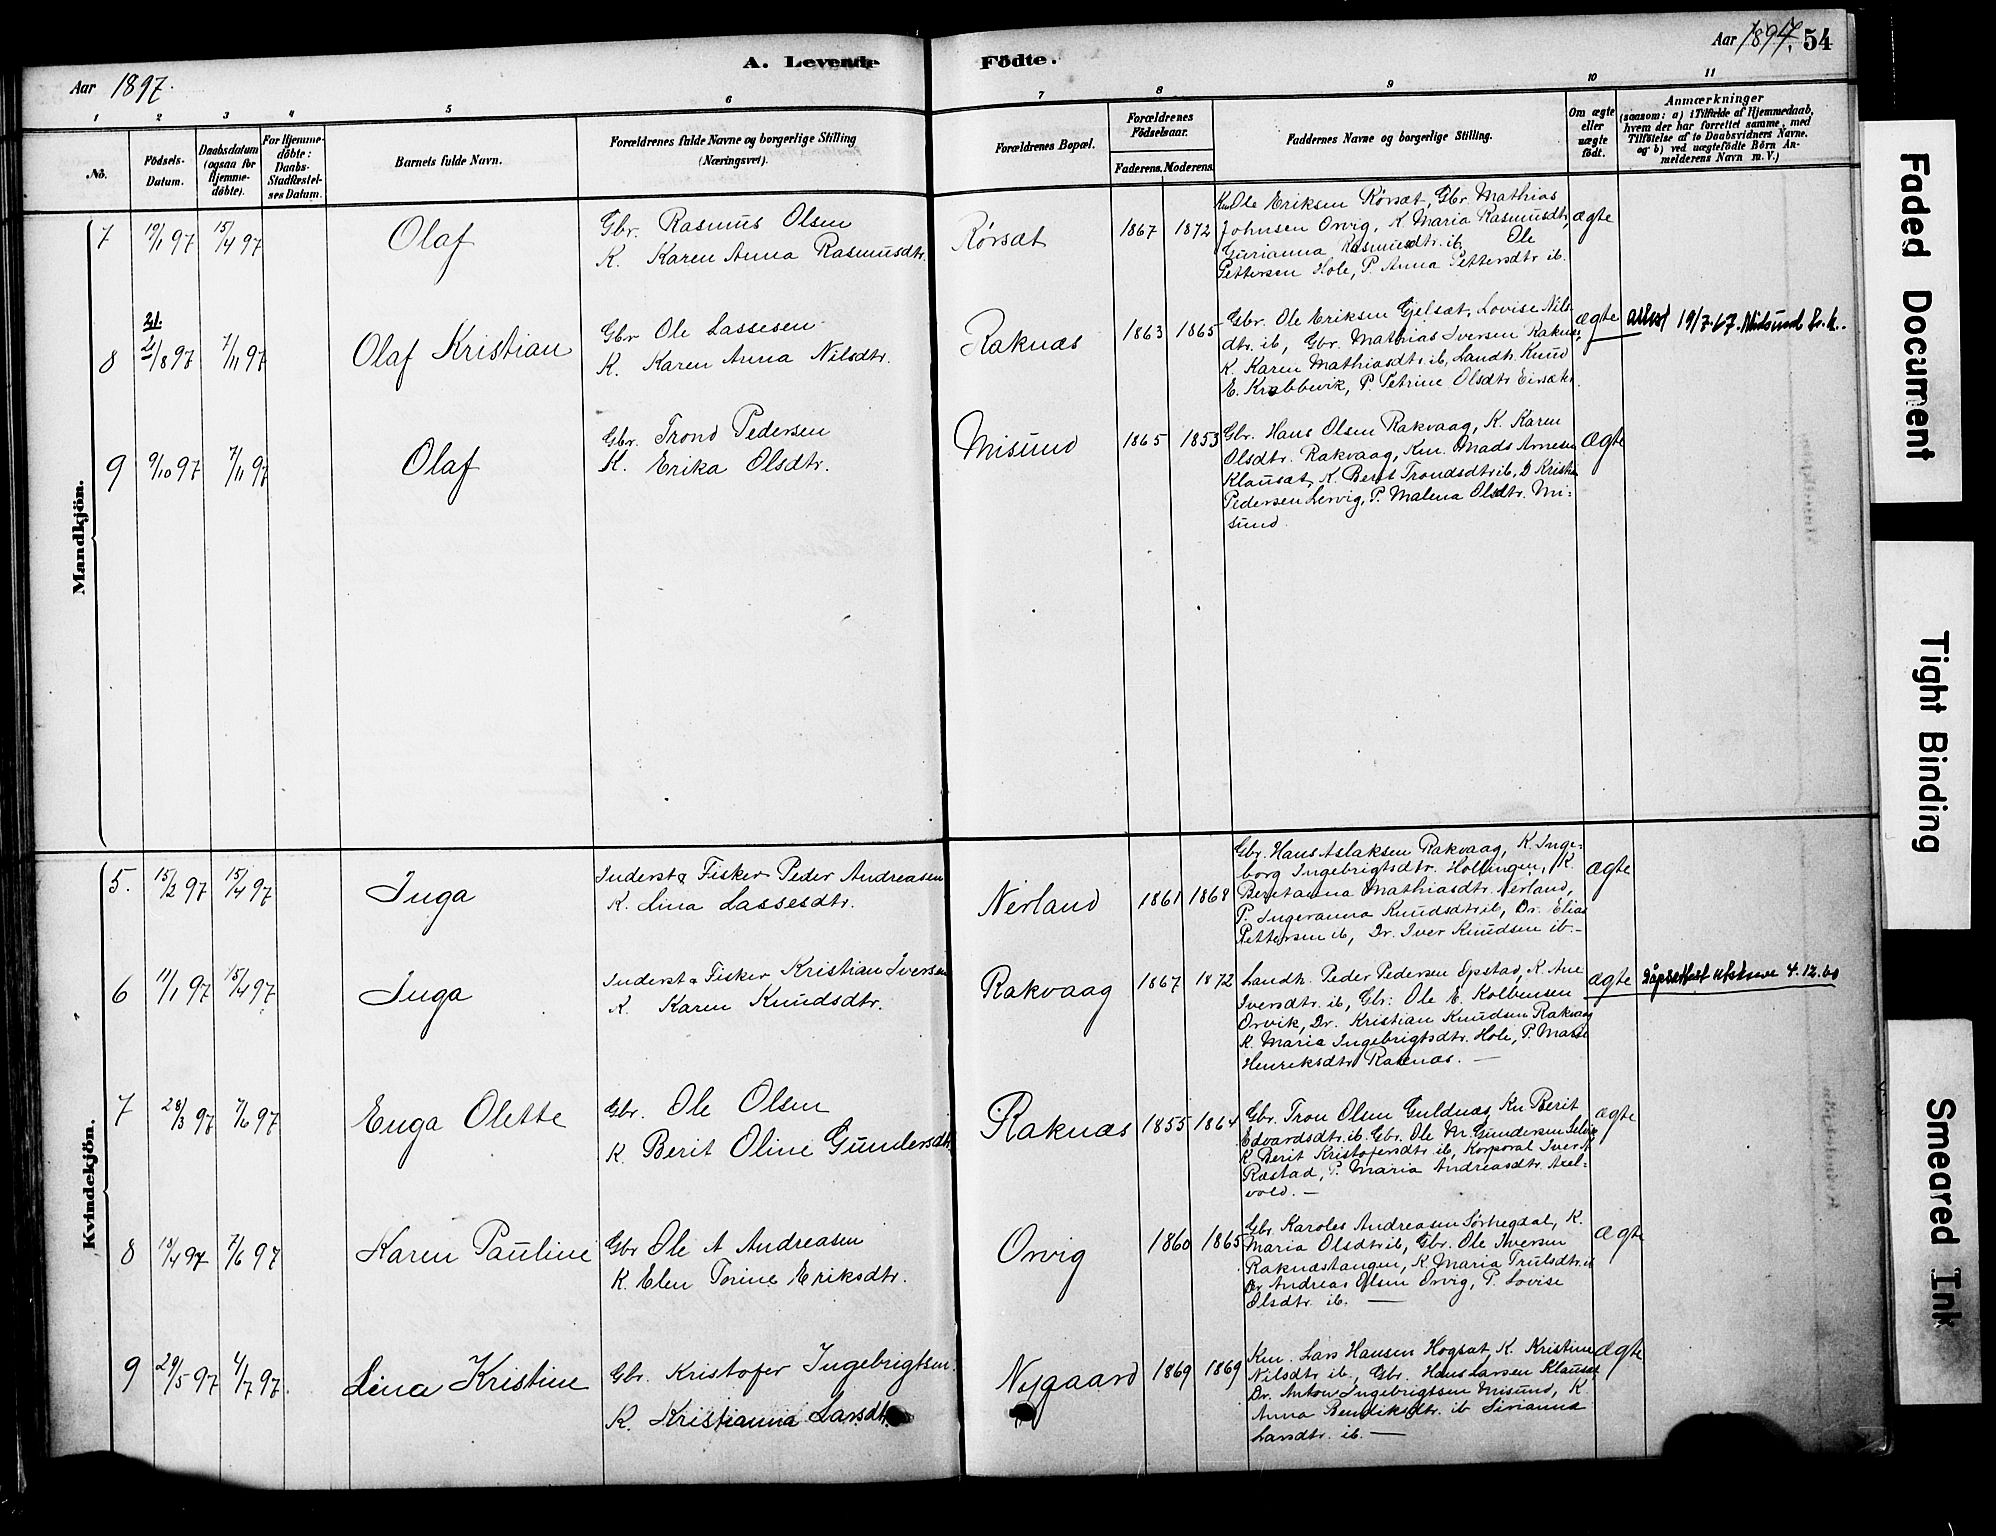 Aar 1897.
A. Levende
Födte.
Aar 1897. 54
1 2 3 4 5 6 7 8 9 10 11
No.
Födsels-Datum.
Daabsdatum (ogsaa for Hjemmedöbte).
For Hjemmedöbte: Daabs-Stadfæstelses Datum.
Barnets fulde Navn.
Forældrenes fulde Navne og borgerlige Stilling
(Næringsvei).
Forældrenes Bopæl.
Forældrenes Födselsaar.
Faderens. Moderens.
Faddernes Navne og borgerlige Stilling.
Om ægte eller uægte födt.
Anmærkninger
(saasom: a) i Tilfælde af Hjemmedaab,
hvem der har forrettet samme, med
Tilföielse af to Daabsvidners Navne.
og b) ved uægtefödte Börn An-
melderens Navn m. V.)
Mandkjön.
7 19/1 97 15/4 97 Olaf
Gbr. Rasmus Olsen
K. Karen Anna Rasmusdtr.
Rørsæt 1867 1872
Km Ole Eriksen Rørsæt, Gbr. Mathias
Johnsen Orvig, K. Maria Rasmusdtr,
Gurianna Rasmusdtr. ib, Ole
Pettersen Hole, P. Anna Pettersdtr ib.
ægte
8 21. 21/8 97 7/11 97 Olaf Kristian
Gbr Ole Lassesen
K. Karen Anna Nilsdtr.
Raknæs 1863 1865
Gbr. Ole Eriksen Gjelsæt, Lovise Nils
dtr. ib, Gbr. Mathias Iversen Raknæs,
K. Karen Mathiasdtr ib, Landh. Knud
E. Krabbevik, P. Petrine Olsdtr
ægte
19/7-67. Midsund
9 9/10 97 7/11 97 Olaf
Gbr. Trond Pedersen
K. Erika Olsdtr.
Misund 1865 1853
Gbr. Hans Olsen Rakvaag, K. Karen
Olsdtr. Rakvaag, Km. Mads Arnesen
Klausæt, K. Berit Trondsdtr ib,
Pedersen Lervig, P. Malena Olsdtr. Mi-
sund.
ægte
Kvindekjön.
5. 15/2 97 15/4 97 Inga
Inderst & Fisker Peder Andreasen
K. Lina Lassesdtr.
Nerland 1861 1868
Gbr. Hans Aslaksen Rakvaag, K. Inge-
borg Ingebrigtsdtr. Hollingen, K.
Beretanna Mathiasdtr. Nerland,
P. Ingeranna Knudsdtr ib, Dr. Elias
Pettersen ib, Dr. Iver Knudsen ib. —
ægte
6 11/1 97 15/4 97 Inga
Inderst & Fisker Kristian Iversen
K. Karen Knudsdtr.
Rakvaag 1867 1872
Landh. Peder Pedersen Opstad, K. Ane
Iversdtr. ib, Gbr. Ole E. Kolbensen
Orvik, Dr. Kristian Knudsen Rakvaag
K. Maria Ingebrigtsdtr. Hole, P.
Henriksdtr Raknæs. —
ægte
4.12.60
7 28/3 97 7/6 97 Enga Olette
Gbr. Ole Olsen
K. Berit Oline Gundersdtr
Raknæs 1855 1864
Gbr. Tron Olsen Guldnæs, Kn Berit
Edvardsdtr. ib. Gbr. Ole M. Gundersen
K Berit Kristofersdtr ib, Korporal Iver
Rostad, P. Maria Andreasdtr. Axel-
vold. —
ægte
8 13/4 97 7/6 97 Karen Pauline
Gbr Ole A Andreasen
K. Elen Torine Eriksdtr.
Orvig 1860 1865
Gbr Karoles Andreasen Sørhegdal, K.
Maria Olsdtr ib, Gbr. Ole Iversen
Raknæstangen, K. Maria Trulsdtr. ib
Dr. Andreas Olsen Orvig, P. Lovise
Olsdtr. ib. —
ægte
9 29/5 97 4/7 97. Lina Kristine
Gbr. Kristofer Ingebrigtsen.
K. Kristianna Larsdtr
Nygaard 1869 1869
Km. Lars Hansen Hogsæt, K. Kristine
Nilsdtr ib, Gbr. Hans Larsen Klausæt
Dr. Anton Ingebrigtsen Misund, K
Anna Bendiksdtr. ib Sivianna
Larsdtr. ib. —
ægte
Faded Document
Tight Binding
Smeared Ink